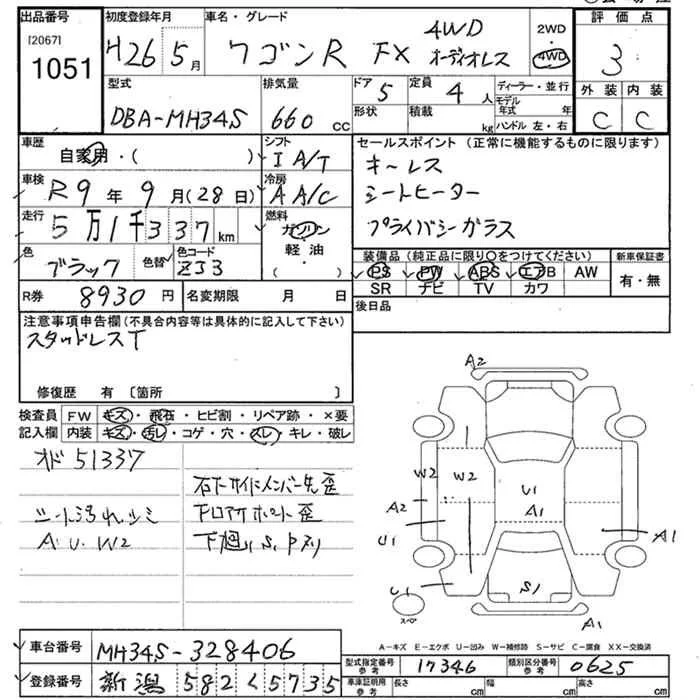 出品番号 初度登録年月 車名・グレード 2WD 評価点
[2067] 1051 H26 5月 ワゴンR FX 4WD オーディオレス 4WD 3
型式 排気量 ドア 5 定員 4人 ディーラー・並行 外装 内装
DBA-MH34S 660 CC 形状 積載 kg モデル年式 年 C C
ハンドル 左・右
車歴 自家用・( ) シフト I A/T セールスポイント (正常に機能するものに限ります)
車検 R9年9月(28日) 冷房 A A/C キーレス
走行 5万1千337km 燃料 ガソリン・軽油・( ) シートヒーター
プライバシーガラス
色 ブラック 色替 色コード ZJ3 装備品 (純正品に限り○をつけてください) 新車保証書
PS PW ABS エアB AW 有・無
R券 8930円 名変期限 月 日 SR ナビ TV カワ
注意事項申告欄 (不具合内容等は具体的に記入して下さい) 後日品
スタッドレスT
修復歴 有 〔箇所 〕
検査員 FW キズ・飛石・ヒビ割・リペア跡・×要
記入欄 内装 キズ・汚レ・コゲ・穴・スレ・キレ・破レ
オド 51337
シート汚れ シミ
A U W2
A2
W2 W2 U1 A1
A2
U1 A1
U1 S1
スペア A1
A-キズ E-エクボ U-凹み W-補修跡 S-サビ C-腐食 XX-交換済
車台番号 MH34S-328406
型式指定番号 参考 17346 類別区分番号 参考 0625
登録番号 新潟 582 く 5735
車庫証明用 参考 長さ cm 幅 cm 高さ cm